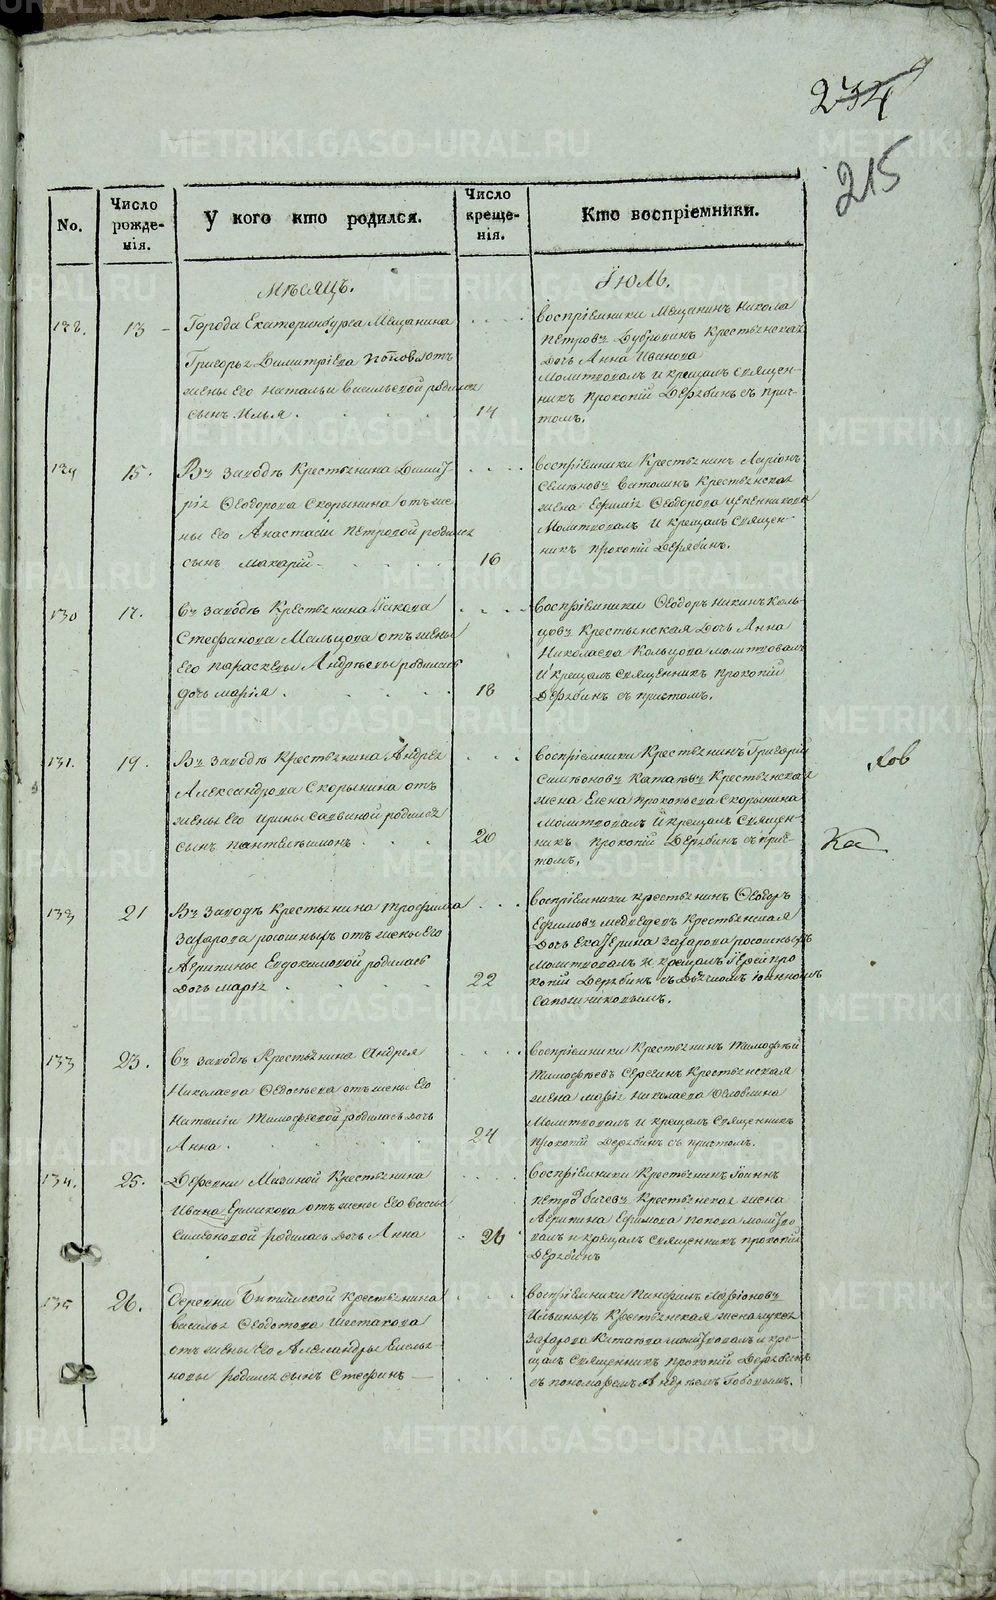 234
215
No.
Число рожде-нія.
У кого кто родился.
Число креще-нія.
Кто воспріемники.
Мѣсяцъ.
Іюль.
128.
13
Города Екатеринбурга Мещанина
Григорья Димитріева отъ
жены его Натальи Васильевой родился
сынъ Илья.
14
Воспріемники Мещанинъ Никола
Петровъ Дубровинъ Крестьянская
Дочь Анна Иванова
Молитвовалъ и крещалъ священ-
никъ Прокопій Дерябинъ съ прич-
томъ.
129
15.
Въ заводѣ Крестьянина Димит
рія Ѳеодорова Скорынина отъ же-
ны его Анастасіи Петровой родился
сынъ Макарій
16
Воспріемники Крестьянинъ Ларіонъ
Семеновъ Крестьянская
жена Ефимія Ѳеодорова
Молитвовалъ и крещалъ священ-
никъ Прокопій Дерябинъ.
130
17.
Въ заводѣ Крестьянина Іакова
Стефанова Мальцова отъ жены
его Параскевы Андреевы родилась
дочь Марія.
18
Воспріемники Ѳеодоръ Никинъ Коль-
цовъ Крестьянская Дочь Анна
Николаева Кольцова молитвовалъ
и крещалъ священникъ Прокопій
Дерябинъ съ причтомъ.
131.
19.
Въ заводѣ Крестьянина Андрея
Александрова Скорынина отъ
жены его Ирины Савиной родился
сынъ Пантелеимонъ
20
Воспріемники Крестьянинъ Григорій
Симеоновъ Катаевъ Крестьянская
жена Елена Прокопьева Скорынина
Молитвовалъ и крещалъ священ-
никъ Прокопій Дерябинъ съ прич-
томъ.
132
21
Въ заводѣ Крестьянина Трофима
Захарова Росошныхъ отъ жены его
Агрипины Евдокимовой родилась
Дочь Марія
22
Воспріемники крестьянинъ Ѳеодоръ
Ефимовъ Медведевъ Крестьянская
Дочь Екатерина Захарова Росошныхъ
Молитвовалъ и крещалъ Іерей Про
копій Дерябинъ съ Дьячкомъ
Сапожниковымъ.
133
23.
Въ заводѣ Крестьянина Андрея
Николаева Ѳедосѣева отъ жены его
Наталіи Тимофеевой родилась дочь
Анна.
24
Воспріемники Крестьянинъ Тимофѣй
Тимофѣевъ Сергинъ Крестьянская
жена Марія Николаева
Молитвовалъ и крещалъ священникъ
Прокопій Дерябинъ съ причтомъ.
134.
25.
Деревни Мазиной Крестьянина
Ивана Ермакова отъ жены его Васы
Симеоновой родилась дочь Анна
26
Воспріемники Крестьянинъ Іоаннъ
Петровъ Крестьянская жена
Агрипина Ефимова Попова молитво
валъ и крещалъ священникъ Прокопій
Дерябинъ
135
26.
Деревни крестьянина
Василья Ѳеодотова Шестакова
отъ жены его Александры Емелья-
новы родился сынъ Стефанъ
Воспріемники Панфилъ Ларіоновъ
Ильиныхъ Крестьянская жена
Захарова Катаева молитвовалъ и кре-
щалъ священникъ Прокопій Дерябинъ
съ пономаремъ Андреемъ
METRIKI.GASO-URAL.RU